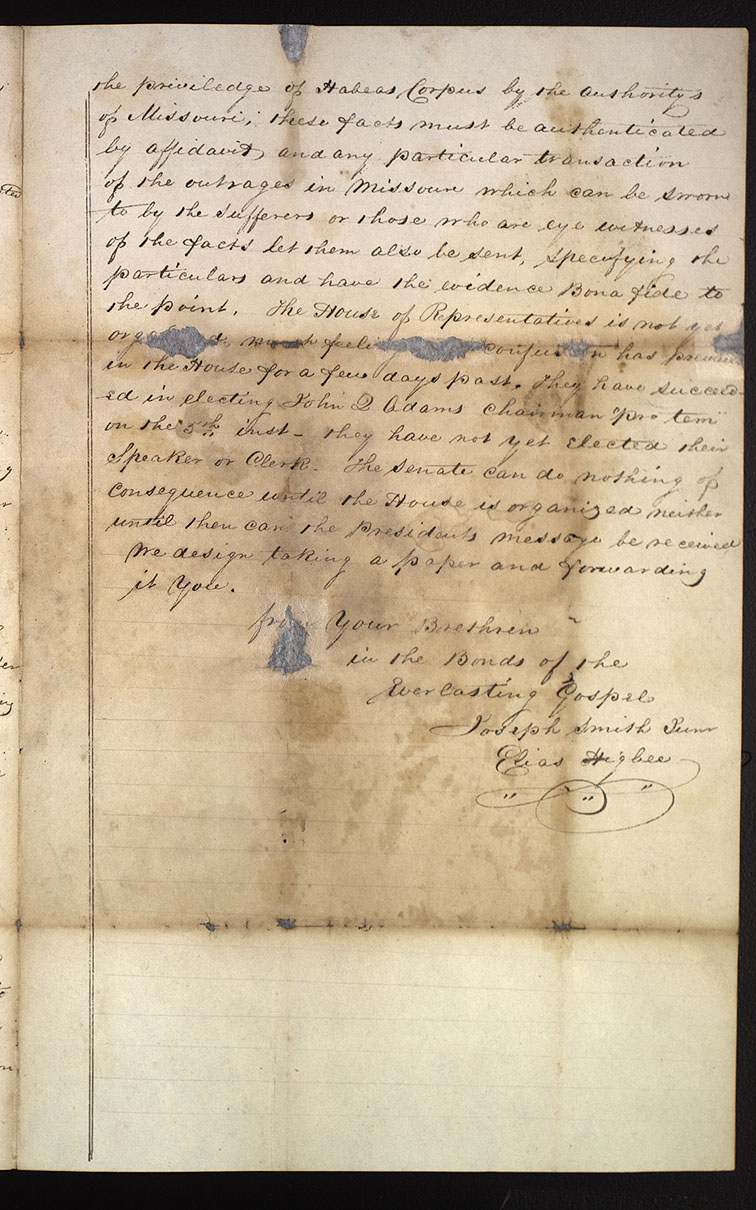 the priviledge of Habeas Corpus by the authoritys
of Missouri; these facts must be authenticated
by affidavit, and any particular transaction
of the outrages in Missouri which can be sworn
to by the sufferers or those who are eye witnesses
of the facts let them also be sent, specifying the
particulars and have the evidence Bona fide to
the point. The House of Representatives is not yet
orga d, much feeli confusion has prevai
in the House for a few days past. They have succeed-
ed in electing John Q Adams Chairman "pro tem"
on the 5th inst- they have not yet elected their
Speaker or Clerk- The Senate can do nothing of
consequence until the House is organized neither
until then can the Presidents message be received
We design taking a paper and forwarding
it you.
from Your Brethren
in the Bonds of the
Everlasting Gospel
Joseph Smith Junr
Elias Higbee
" " "